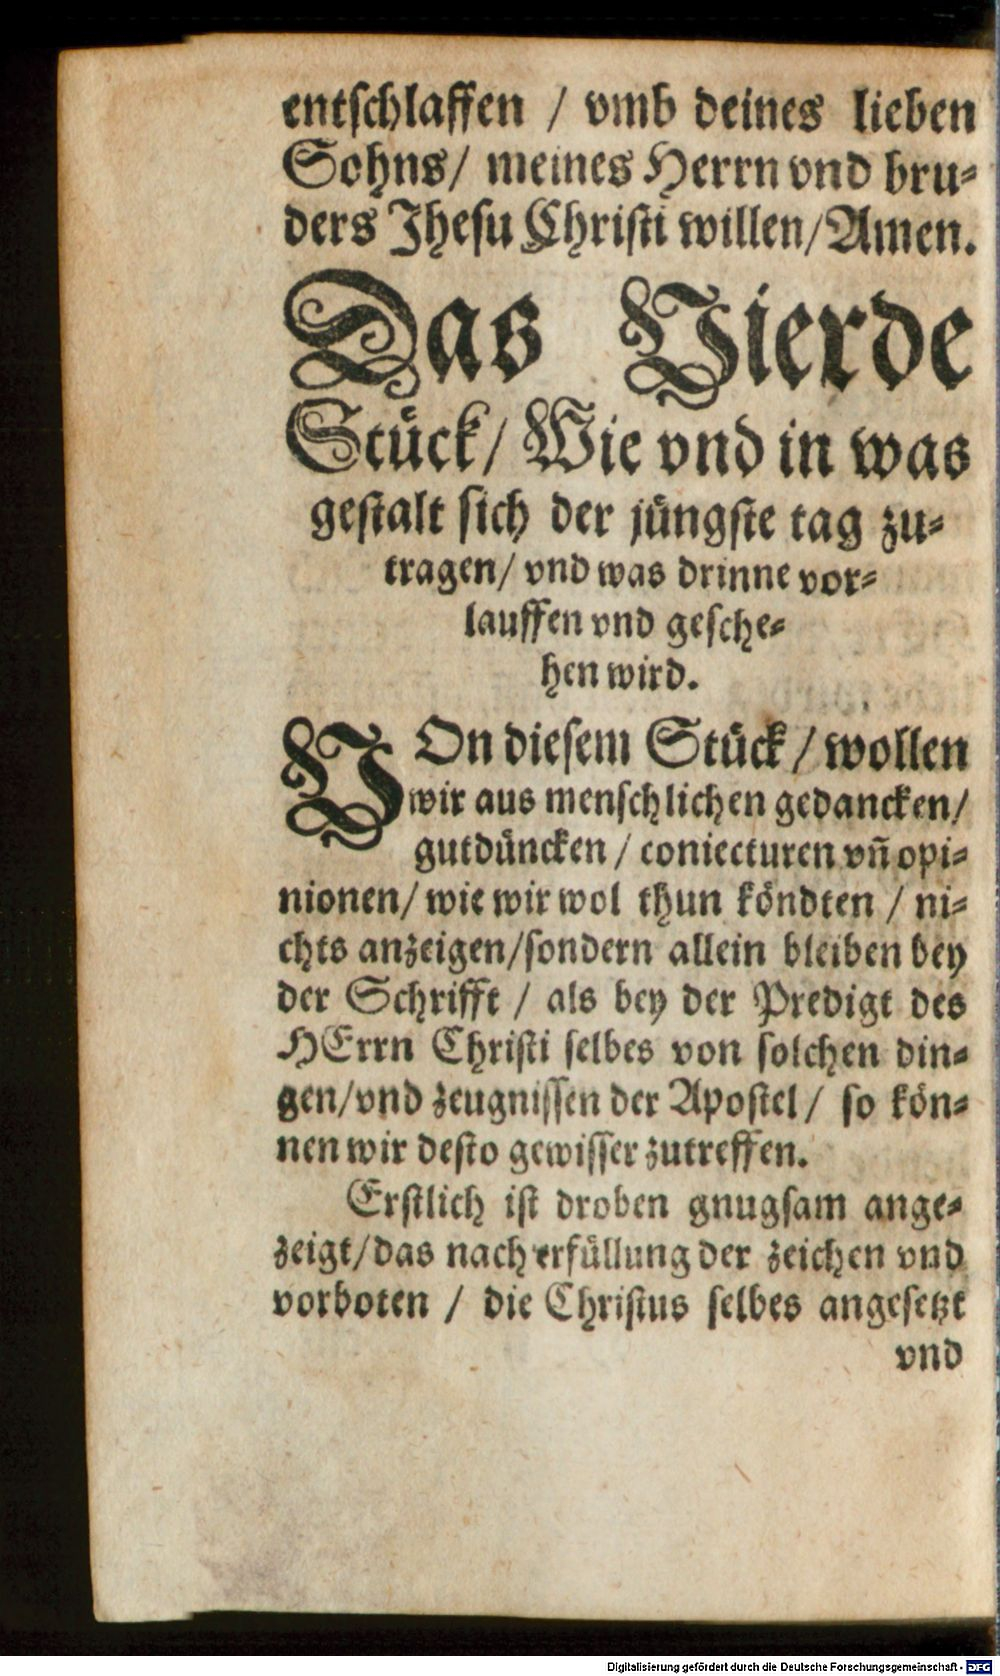 entschlaffen / vmb deines lieben
Sohns/ meines Herrn vnd bru⸗
ders Jhesu Christi willen/Amen.
Das Vierde
Stück/ Wie vnd in was
gestalt sich der jüngste tag zu⸗
tragen/ vnd was drinne vor⸗
lauffen vnd gesche⸗
hen wird.
VOn diesem Stück / wollen
wir aus menschlichen gedancken/
gutdüncken / coniecturen vñ opi⸗
nionen/ wie wir wol thun köndten / ni⸗
chts anzeigen/sondern allein bleiben bey
der Schrifft / als bey der Predigt des
HErrn Christi selbes von solchen din⸗
gen/vnd zeugnissen der Apostel / so kön⸗
nen wir desto gewisser zutreffen.
Erstlich ist droben gnugsam ange⸗
zeigt/das nach erfüllung der zeichen vnd
vorboten / die Christus selbes angesetzt
vnd
Digitalisierung gefördert durch die Deutsche Forschungsgemeinschaft - DFG